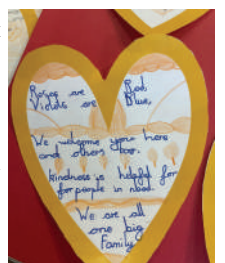 Roses are Red,
Violets are Blue,
We welcome you here
and others too.
kindness is helpful for
for people in need.
We are all
one big
Family